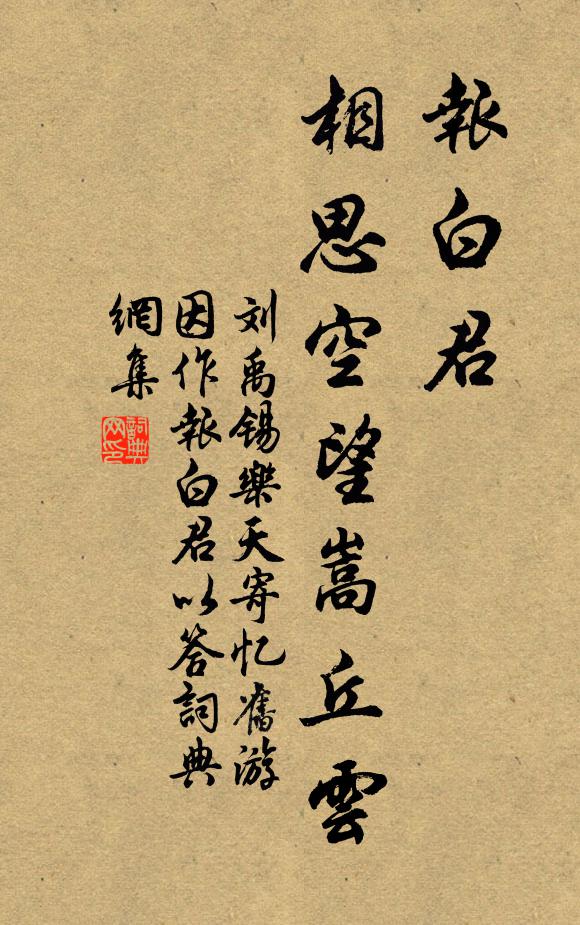 報白君
相思空望嵩丘雲
刘禹锡樂天寄忆舊游
因作報白君以答詞典
網集
詞典
网印